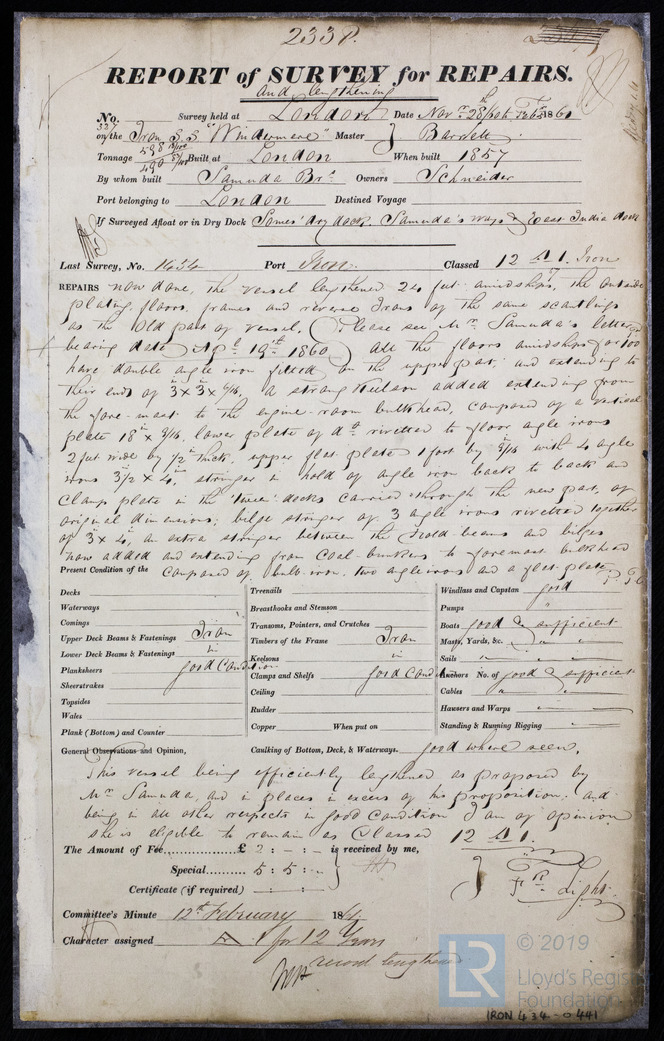 233 P.
REPORT of SURVEY for REPAIRS.
and lengthening
No. Survey held at London Date Nov 28 1860
on the Iron S.S. "Windermere" Master Barrett
Tonnage 598 490 Built at London When built 1857
By whom built Samuda Bros. Owners Schneider
Port belonging to London Destined Voyage
If Surveyed Afloat or in Dry Dock Somes' dry dock, Samuda's ways & East India dock
Last Survey, No. 1434 Port Iron Classed 12 A 1. Iron
REPAIRS now done, the vessel lengthened 24 feet amidships, the outside
plating, floors, frames and reverse Irons of the same scantlings
as the old part of vessel, (Please see Mr. Samuda's letter
bearing date Apl. 19th 1860) All the floors amidships for 100
have double angle iron fitted on the upper part, and extending to
their ends of 3 x 3 x 7/16, a strong Keelson added extending from
the fore-mast to the engine-room bulkhead, composed of a vertical
plate 18 x 9/16, lower plate of do. rivetted to floor angle irons
2 feet wide by 1/2 thick, upper flat plate 1 foot by 9/16 with 4 angle
irons 3 1/2 x 4, stringer in hold of angle iron back to back and
clamp plate in the 'tween decks carried through the new part, of
original dimensions; bilge stringer of 3 angle irons rivetted together
of 3 x 4, an extra stringer between the hold-beams and bilges
now added and extending from coal-bunkers to foremost bulkhead
Present Condition of the composed of bulb-iron, two angle irons and a flat plate
Decks
Waterways
Comings
Upper Deck Beams & Fastenings Iron
Lower Deck Beams & Fastenings "
Planksheers good condition
Sheerstrakes
Topsides
Wales
Plank (Bottom) and Counter
Treenails
Breasthooks and Stemson
Transoms, Pointers, and Crutches
Timbers of the Frame Iron
Keelsons "
Clamps and Shelfs good cond
Ceiling
Rudder
Copper When put on
Windlass and Capstan good
Pumps "
Boats good & sufficient
Masts, Yards, &c. " "
Sails " "
Anchors No. of good & sufficient
Cables " "
Hausers and Warps
Standing & Running Rigging
General Observations and Opinion, Caulking of Bottom, Deck, & Waterways. good where seen.
This vessel being efficiently lengthened as proposed by
Mr. Samuda, and in places in excess of his proposition, and
being in all other respects in good condition I am of opinion
she is eligible to remain as Classed 12 A 1.
The Amount of Fee £ 2 : - : - is received by me,
Special 5 : 5 : -
Light
Certificate (if required)
Committee's Minute 12th February 1861
Character assigned A 1 for 12 Years
record lengthened
LR © 2019
Lloyd's Register
Foundation
IRON 434-0441